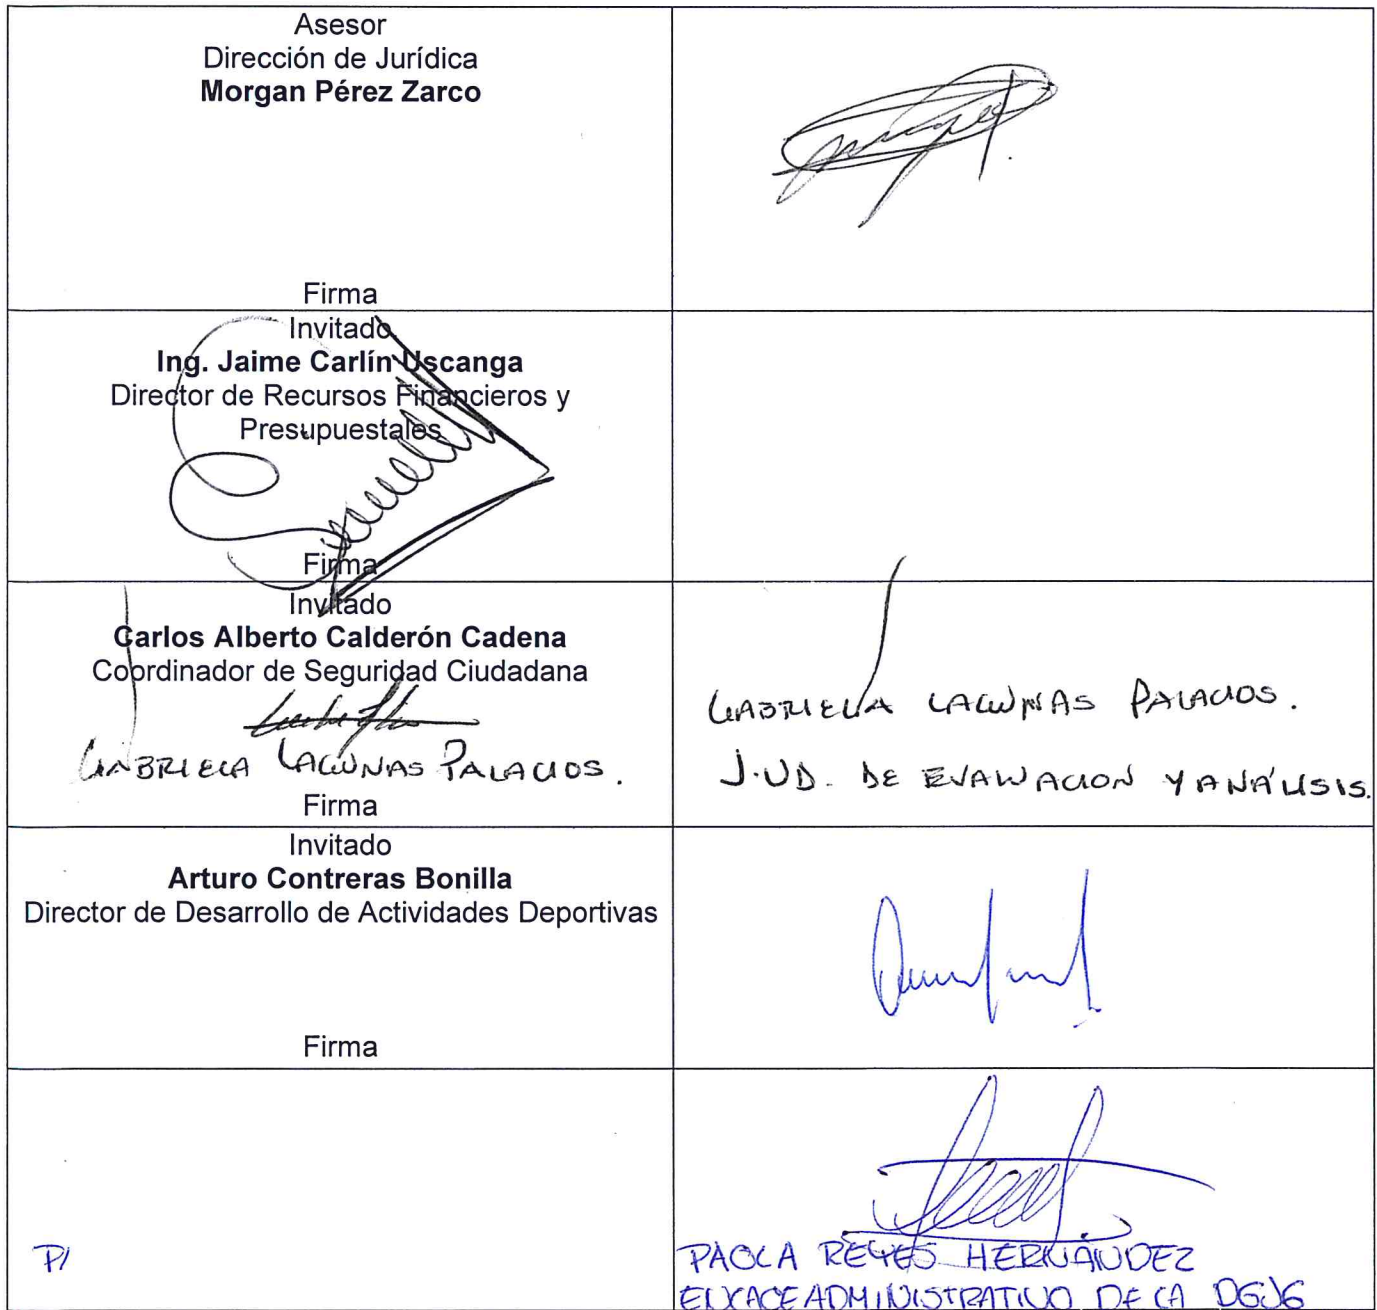 Asesor
Dirección de Jurídica
Morgan Pérez Zarco
Firma
Invitado
Ing. Jaime Carlín Uscanga
Director de Recursos Financieros y
Presupuestales
Firma
Invitado
Carlos Alberto Calderón Cadena
Coordinador de Seguridad Ciudadana
GABRIELA LAGUNAS PALACIOS.
Firma
GABRIELA LAGUNAS PALACIOS.
J.UD. DE EVALUACION Y ANÁLISIS.
Invitado
Arturo Contreras Bonilla
Director de Desarrollo de Actividades Deportivas
Firma
P/
PAOLA REYES HERNÁNDEZ
ENLACE ADMINISTRATIVO DE LA DGJG